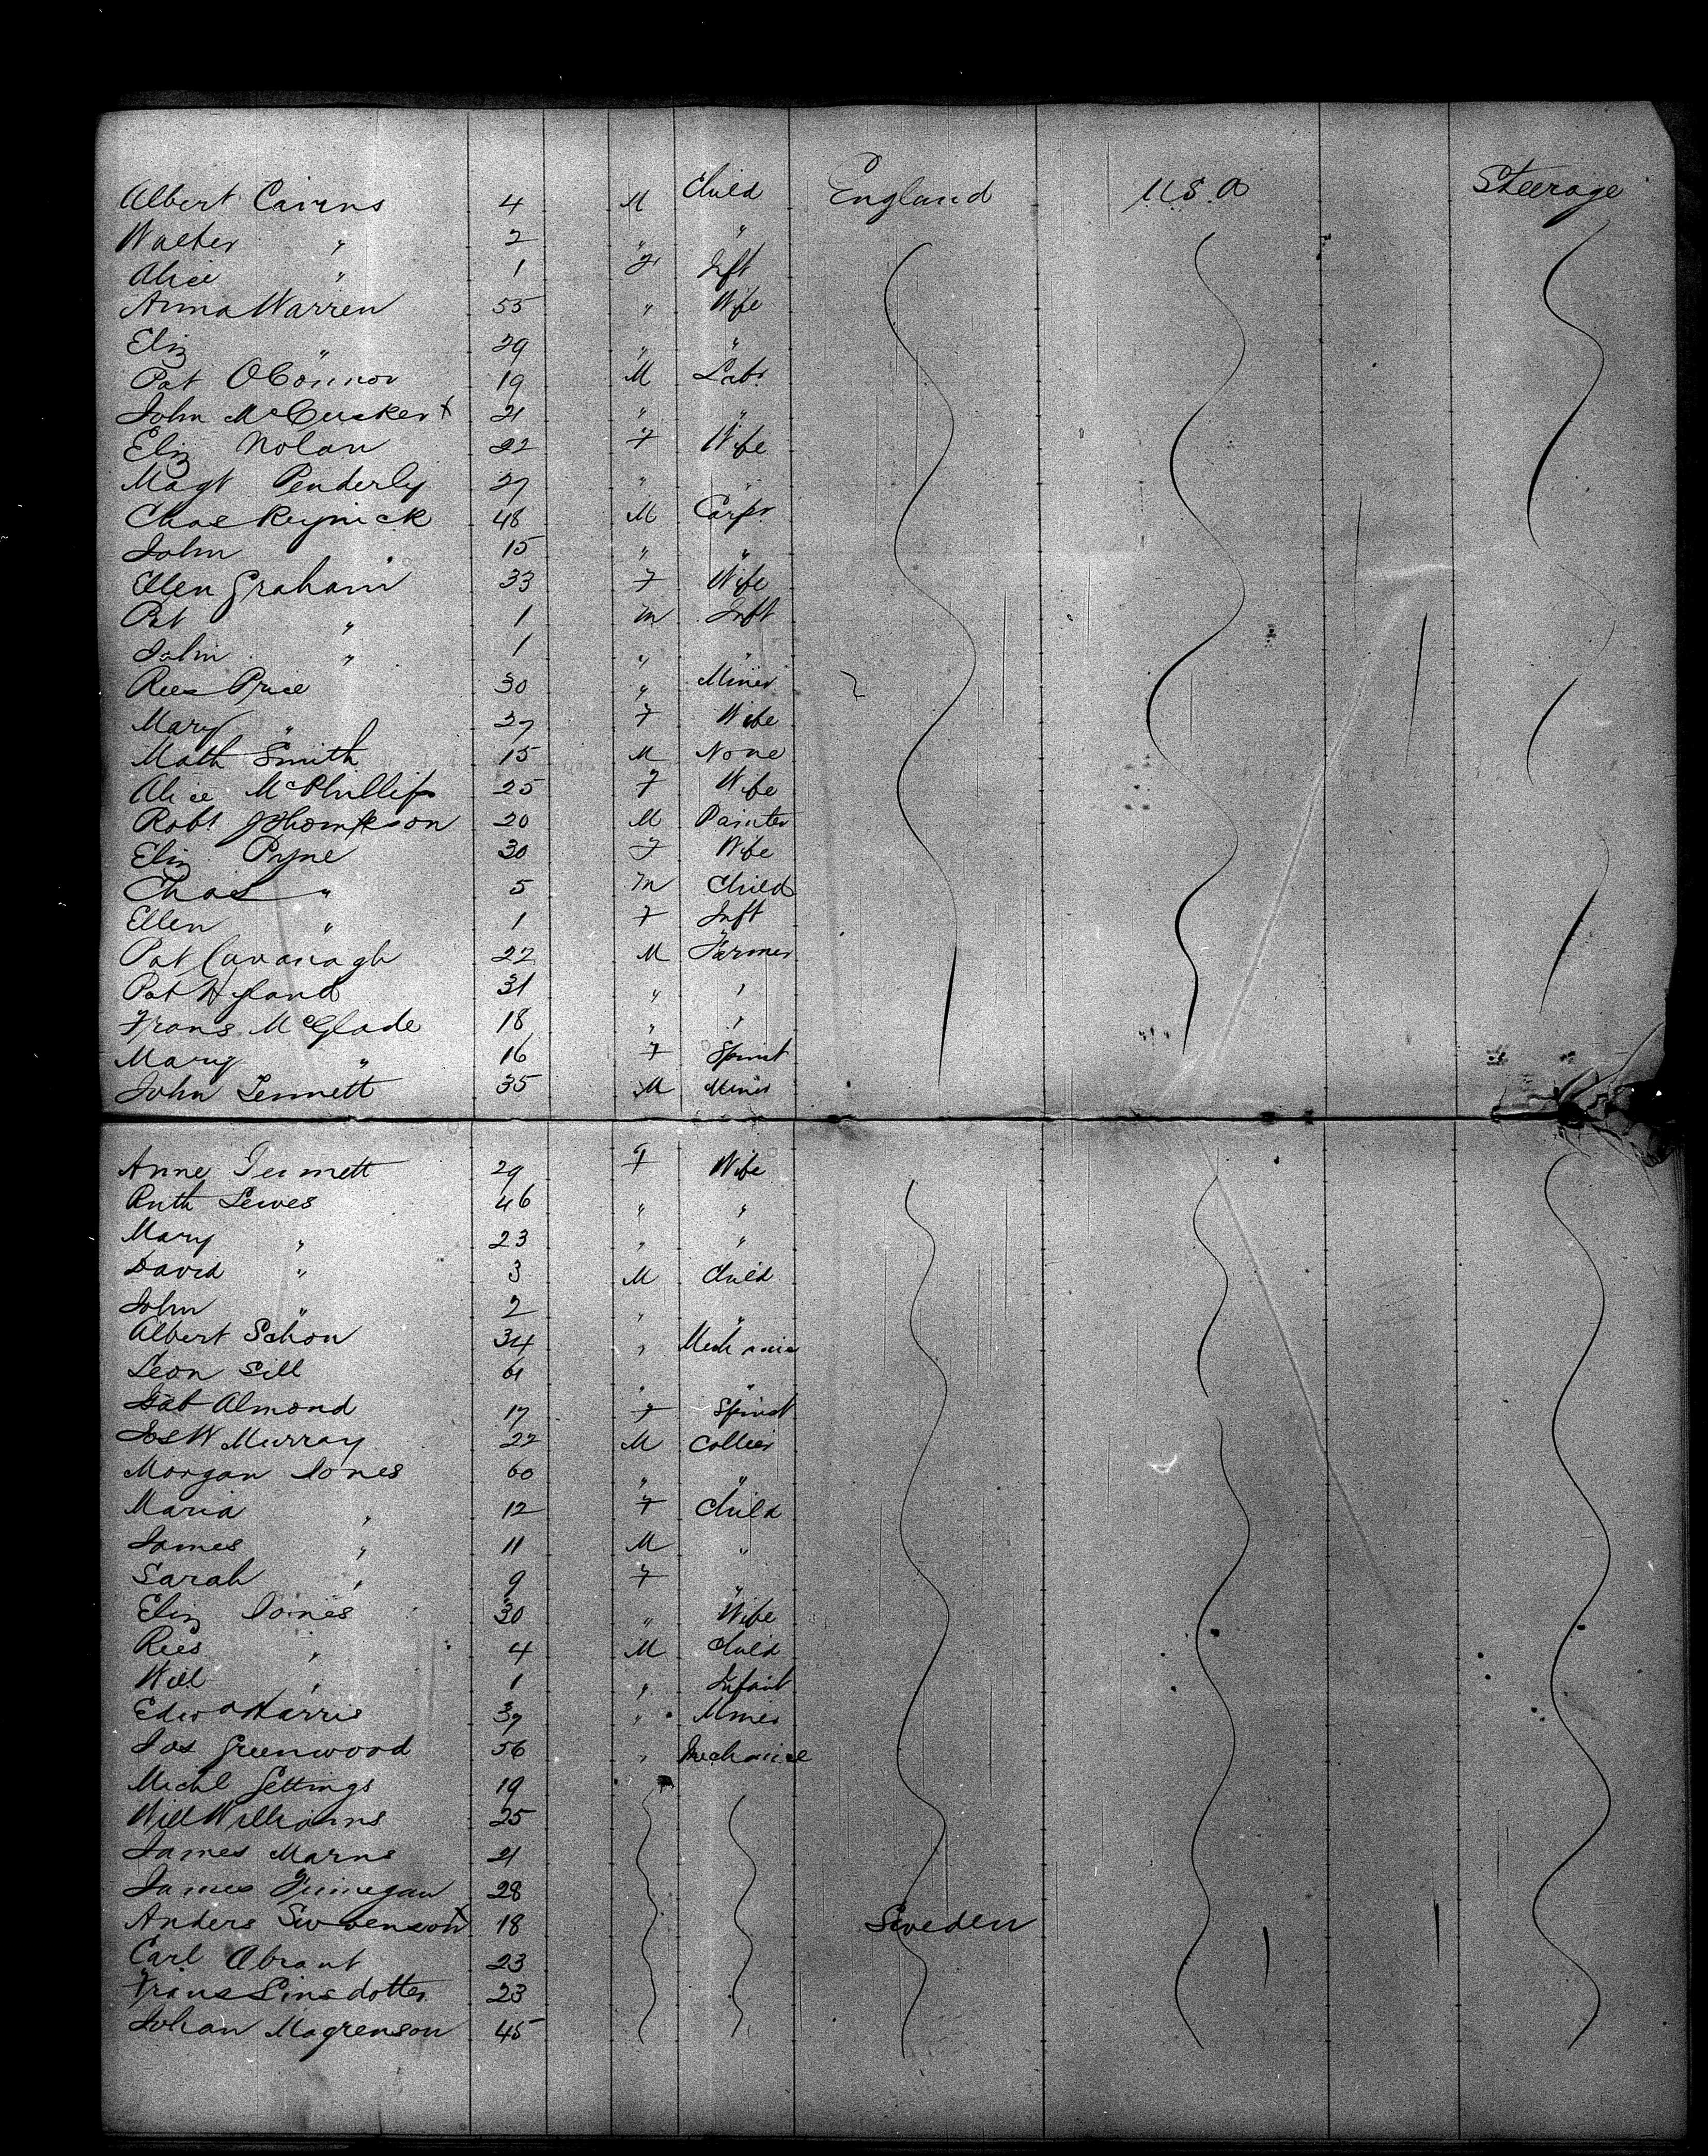 Albert Cairns 4 M Child England U.S.A Steerage
Walter " 2 " "
Alice " 1 F Inft
Anna Warren 55 " Wife
Eliz " 29 " "
Pat OConnor 19 M Labr
John McCusker x 21 " "
Eliz Nolan 22 F Wife
Magt Penderly 27 " "
Chas Reynick 48 M Carpr
John " 15 " "
Ellen Graham 33 F Wife
Pat " 1 M Inft
John " 1 " "
Rees Price 30 " Miner
Mary " 27 F Wife
Math Smith 15 M None
Alice McPhillips 25 F Wife
Robt JThompson 20 M Painter
Eliz Pyne 30 F Wife
Chas " 5 M Child
Ellen " 1 F Inft
Pat Cavanagh 22 M Farmer
Pat Hyland 31 " "
Frans McGlade 18 " "
Mary " 16 F Spinst
John Tennett 35 M Miner
Anne Tennett 29 F Wife
Ruth Lewes 46 " "
Mary " 23 " "
David " 3 M Child
John " 2 " "
Albert Schon 34 " Mechanic
Leon Sill 61 " "
Gab Almond 17 F Spinst
Jos W Murray 22 M Collier
Morgan Jones 60 " "
Maria " 12 F Child
James " 11 M "
Sarah " 9 F "
Eliz Jones 30 " Wife
Rees " 4 M Child
Will " 1 " Infant
Edwd Harris 37 " Miner
Jos Greenwood 56 " Mechanic
Michl Gettings 19
Will Williams 25
James Marns 21
James Finnegan 28
Anders Swenson x 18 Sweden
Carl Abrant 23
Frans Linsdotter 23
Johan Magrenson 45